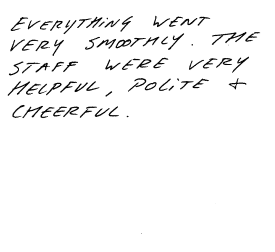 EVERYTHING WENT
VERY SMOOTHLY. THE
STAFF WERE VERY
HELPFUL, POLITE &
CHEERFUL.